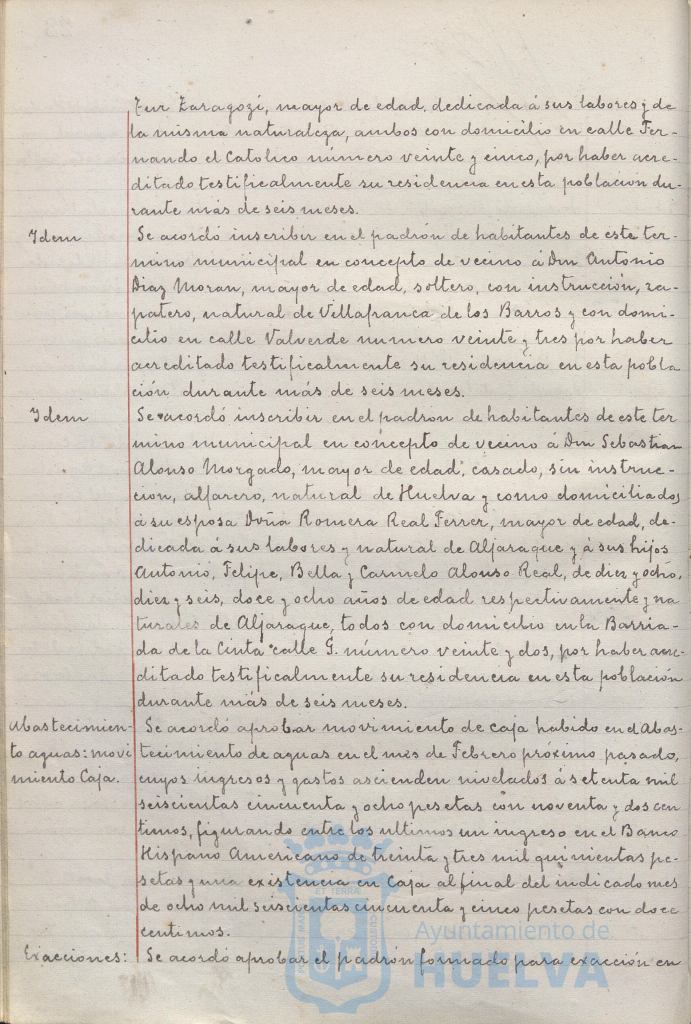 Zur Zaragozí, mayor de edad, dedicada á sus labores y de
la misma naturaleza, ambos con domicilio en calle Fer-
nando el Católico número veinte y cinco, por haber acre-
ditado testificalmente su residencia en esta poblacion du-
rante más de seis meses.
Idem
Se acordó inscribir en el padrón de habitantes de este ter-
mino municipal en concepto de vecino á Don Antonio
Diaz Moran, mayor de edad, soltero, con instrucción, za-
patero, natural de Villafranca de los Barros y con domi-
cilio en calle Valverde numero veinte y tres por haber
acreditado testificalmente su residencia en esta pobla
ción durante más de seis meses.
Idem
Se acordó inscribir en el padrón de habitantes de este ter
mino municipal en concepto de vecino á Don Sebastian
Alonso Morgado, mayor de edad, casado, sin instruc-
cion, alfarero, natural de Huelva y como domiciliados
á su esposa Doña Romera Real Ferrer, mayor de edad, de-
dicada á sus labores y natural de Aljaraque y á sus hijos
Antonio, Felipe, Bella y Carmelo Alonso Real, de diez y ocho,
diez y seis, doce y ocho años de edad respectivamente y na
turales de Aljaraque, todos con domicilio en la Barria-
da de la Cinta calle G. número veinte y dos, por haber acre
ditado testificalmente su residencia en esta población
durante más de seis meses.
Abastecimien-
to aguas: movi
miento Caja.
Se acordó aprobar movimiento de caja habido en el Abas-
tecimiento de aguas en el mes de Febrero próximo pasado,
cuyos ingresos y gastos ascienden nivelados á setenta mil
seiscientas cincuenta y ocho pesetas con noventa y dos cen
timos, figurando entre los ultimos un ingreso en el Banco
Hispano Americano de treinta y tres mil quinientas pe-
setas y una existencia en Caja al final del indicado mes
de ocho mil seiscientas cincuenta y cinco pesetas con doce
centimos.
Exacciones:
Se acordó aprobar el padrón formado para exacción en
Ayuntamiento de
HUELVA